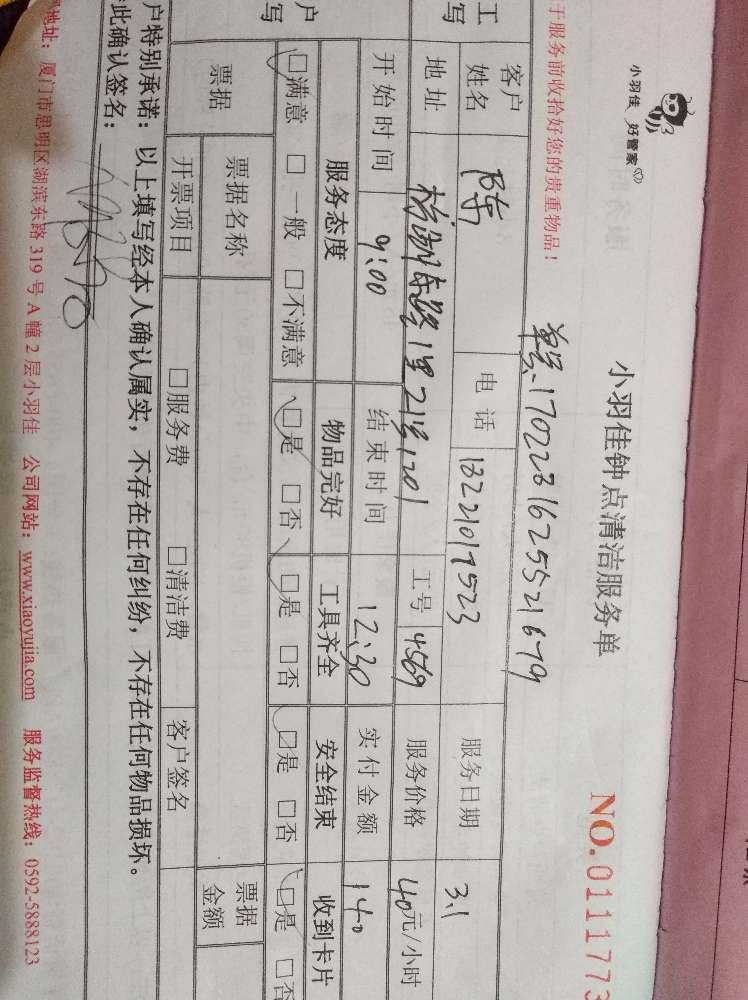 小羽佳 好管家
小羽佳钟点清洁服务单
NO.0111773
于服务前收拾好您的贵重物品！
单号:1702281625521679
工
写
客户姓名 陈 电话 18221017523 服务日期 3.1
地址 1里21号1201 工号 4569 服务价格 40元/小时
开始时间 9:00 结束时间 12:30 实付金额 140
户
写
服务态度 物品完好 工具齐全 安全结束 收到卡片
□满意 □一般 □不满意 □是 □否 □是 □否 □是 □否 □是 □否
票据 票据名称 票据金额
开票项目 □服务费 □清洁费 客户签名
户特别承诺：以上填写经本人确认属实，不存在任何纠纷，不存在任何物品损坏。
此确认签名：
地址：厦门市思明区湖滨东路 319 号 A 幢 2 层小羽佳 公司网站：www.xiaoyujia.com 服务监督热线：0592-5888123